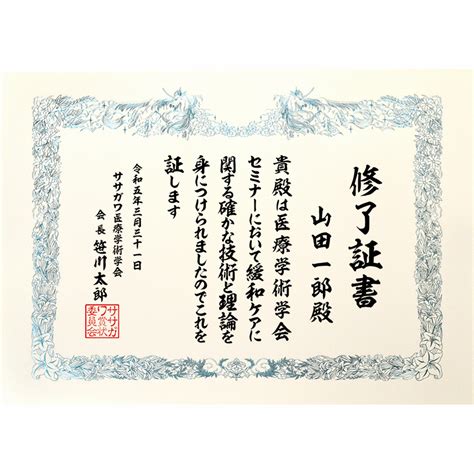 修了証書
山田一郎殿
貴殿は医療学術学会
セミナーにおいて緩和ケアに
関する確かな技術と理論を
身につけられましたのでこれを
証します
令和五年三月三十一日
ササガワ医療学術学会
会長 笹川太郎
ササガ
ワ賞状
委員会